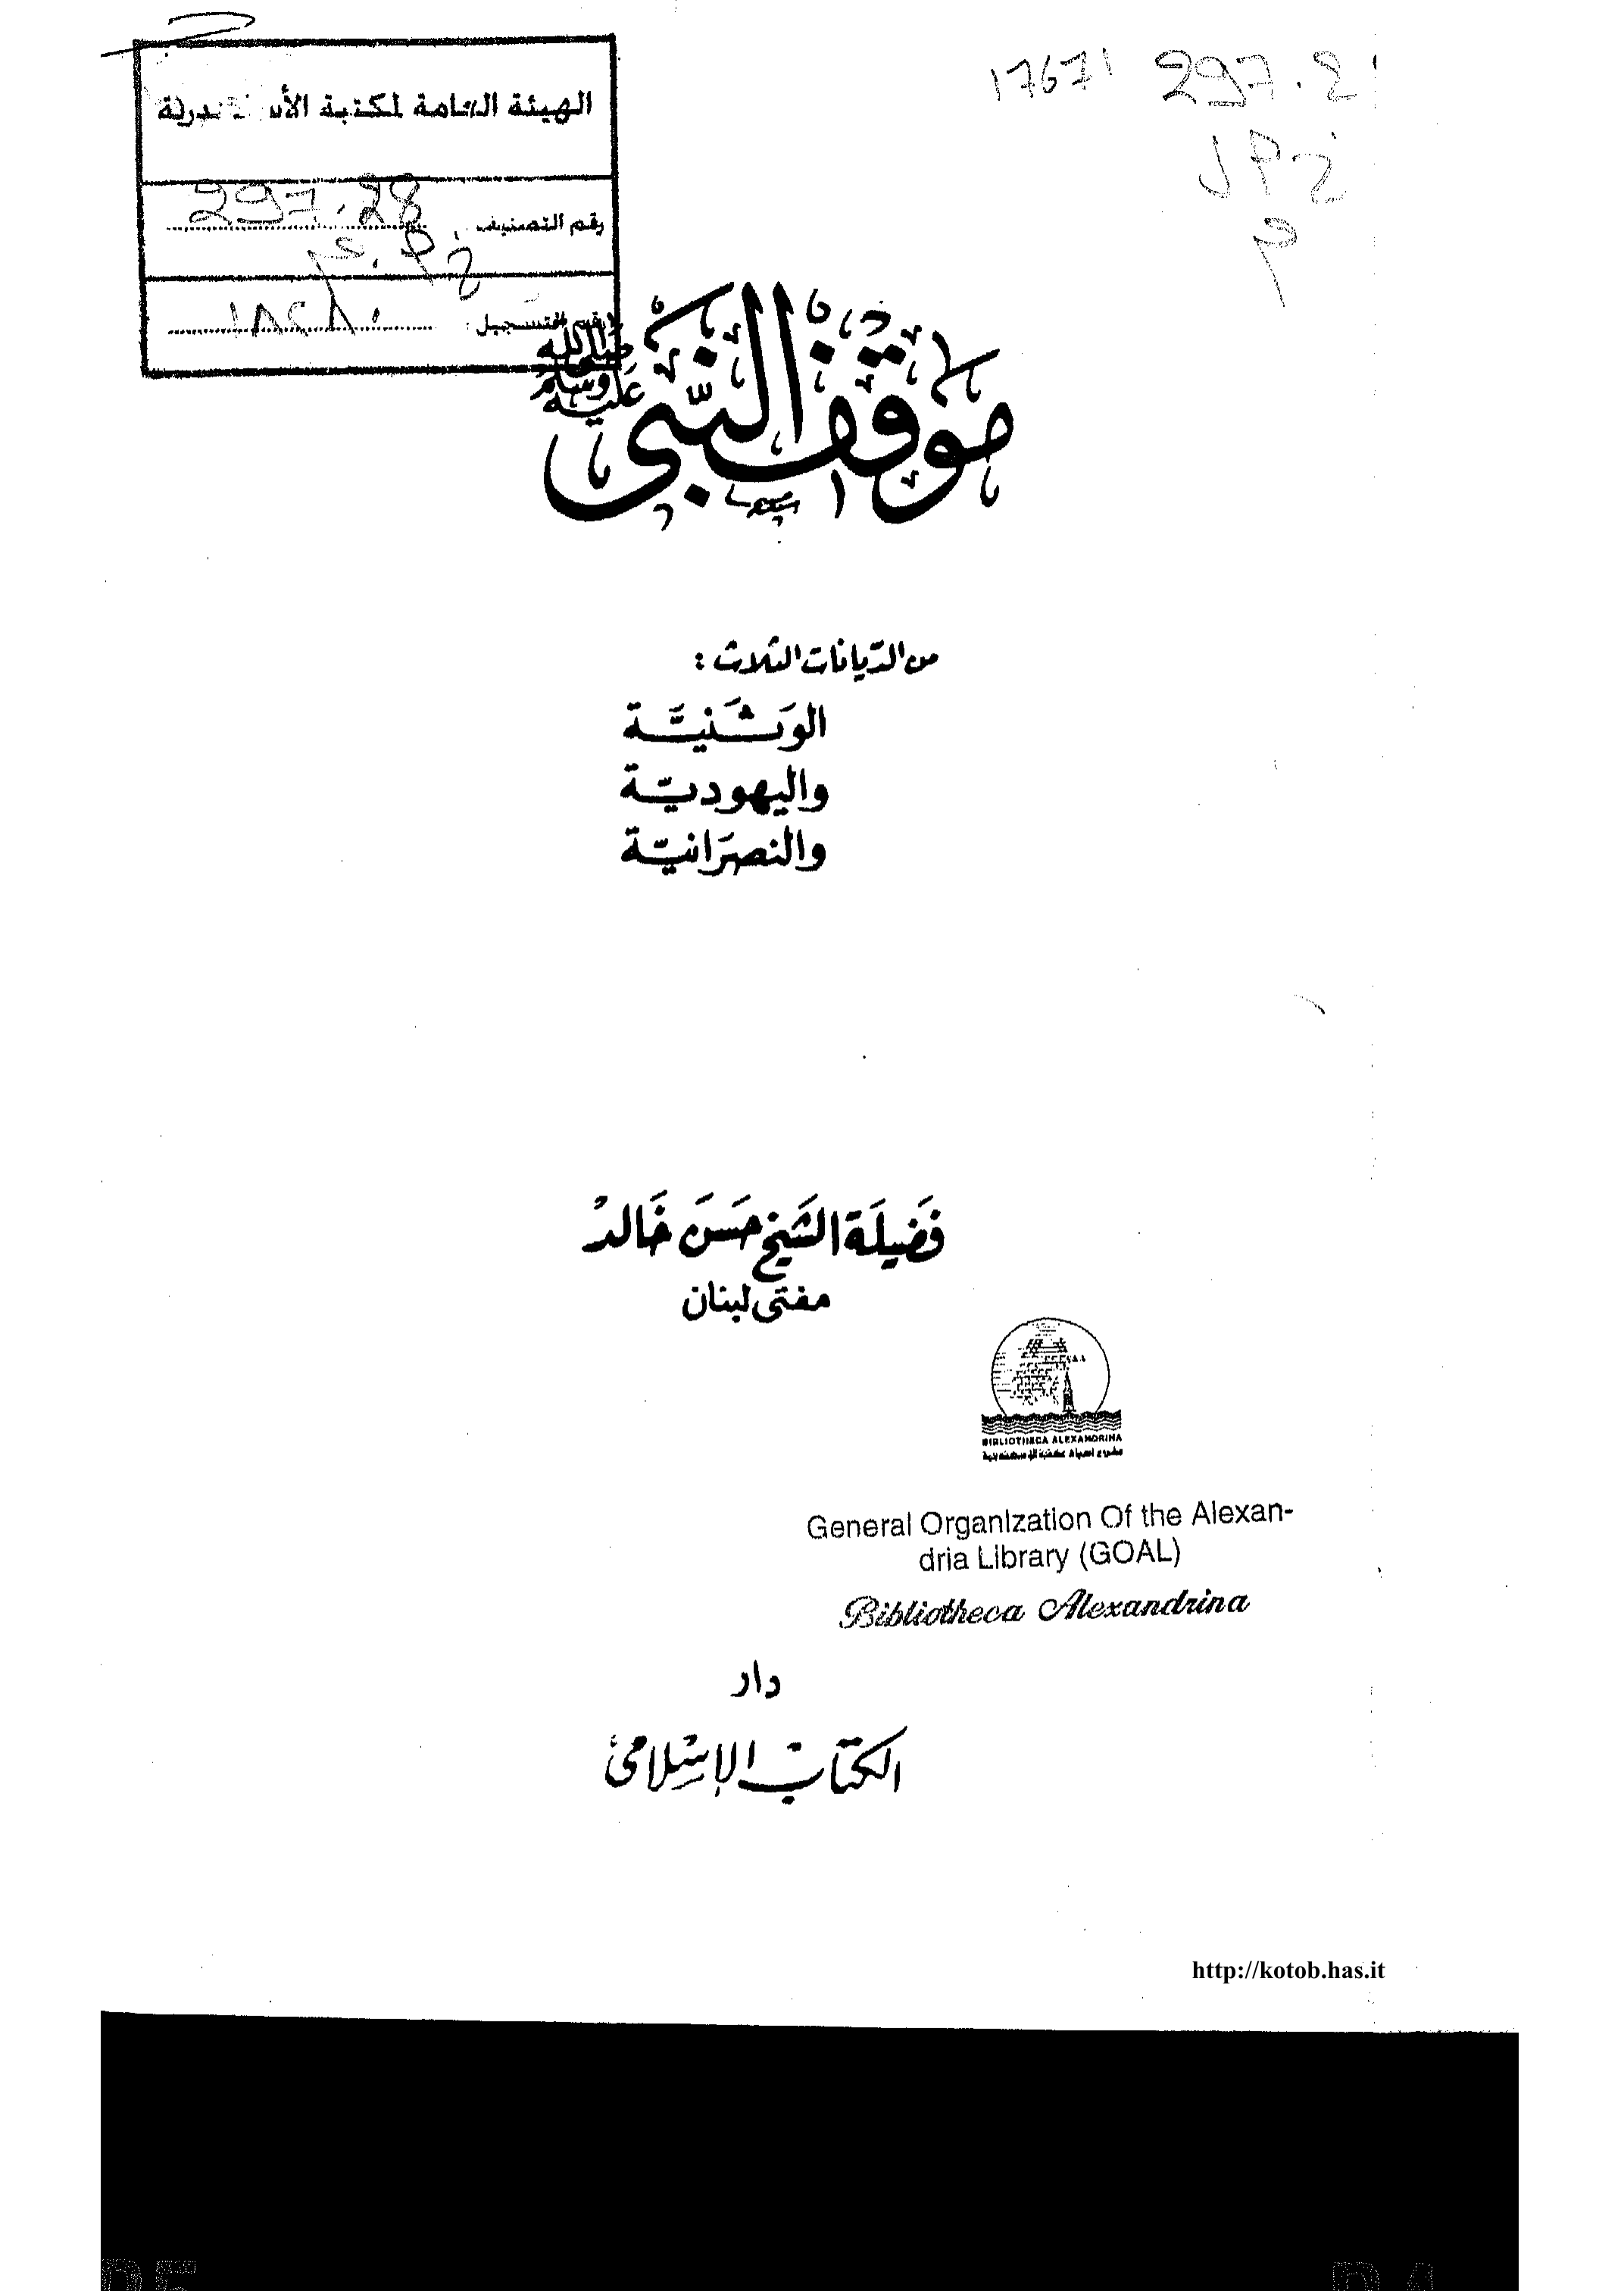 17671 297.2
الهيئة العامة لمكتبة الأسكندرية
رقم التصنيف 297.28
رقم التسجيل: ١٨٤٨٠
موقف النبي
صلى الله عليه وسلم
من الديانات الثلاث :
الوَثَنيَّة
واليهوديّة
والنصرَانيّة
فَضيلَة الشَيخ حسَن خَالدْ
مفتى لبنان
BIBLIOTHECA ALEXANDRINA
General Organization Of the Alexan-
dria Library (GOAL)
Bibliotheca Alexandrina
دار
الكتاب الإسلامي
http://kotob.has.it